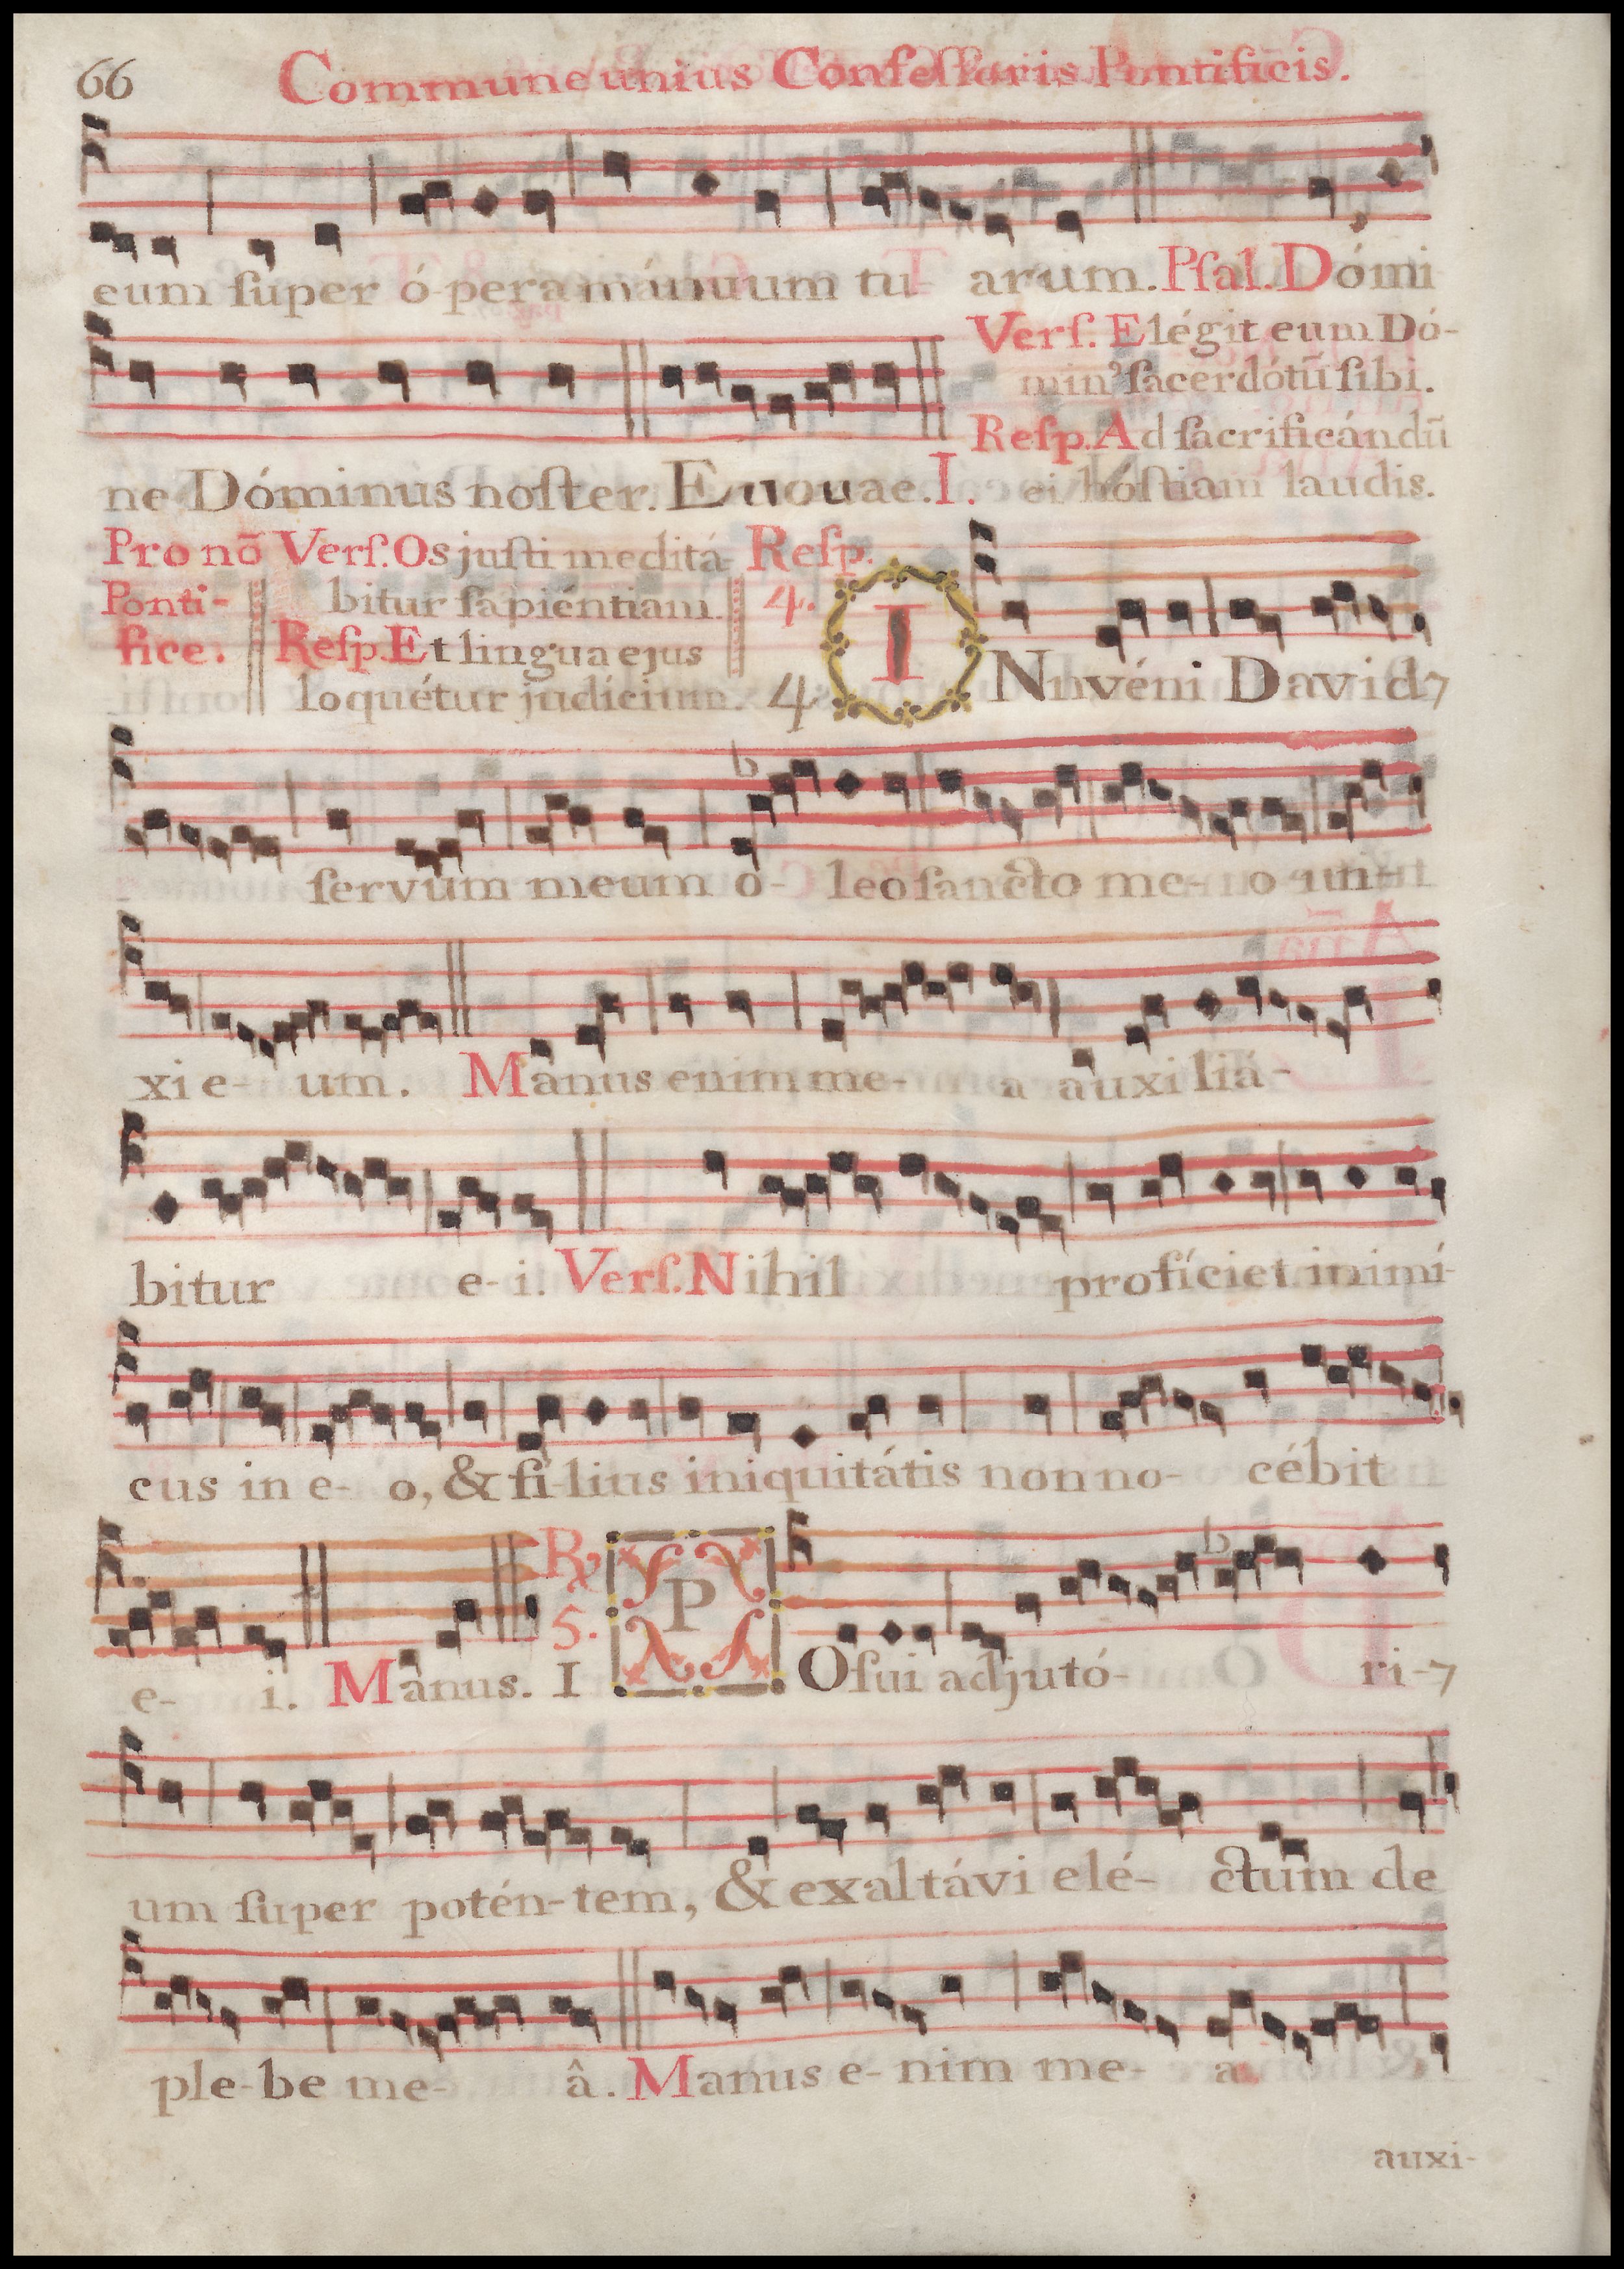 66 Commune unius Confeſſoris Pontificis.
eum ſuper ó-pera mánuum tu- arum. Pſal. Dómi
Verſ. Elégit eum Dó-
minꝰ ſacerdótũ ſibi.
Reſp. Ad ſacrificándũ
ne Dóminus noſter. Euouae. I. ei hóſtiam laudis.
Pro nõ Verſ. Os juſti meditá- Reſp.
Ponti- bitur ſapiéntiam. 4.
fice. Reſp. Et lingua ejus
loquétur judícium. 4 INnvéni David
ſervum meum ó- leo ſancto me- o un-
xi e- um. Manus enim me- a auxiliá-
bitur e- i. Verſ. Nihil profíciet inimí-
cus in e- o, & fí-lius iniquitátis non no- cébit
e- i. Manus. I ℟ 5. POſui adjutó- ri-
um ſuper potén-tem, & exaltávi elé- ctum de
ple-be me- â. Manus e-nim me- a
auxi-